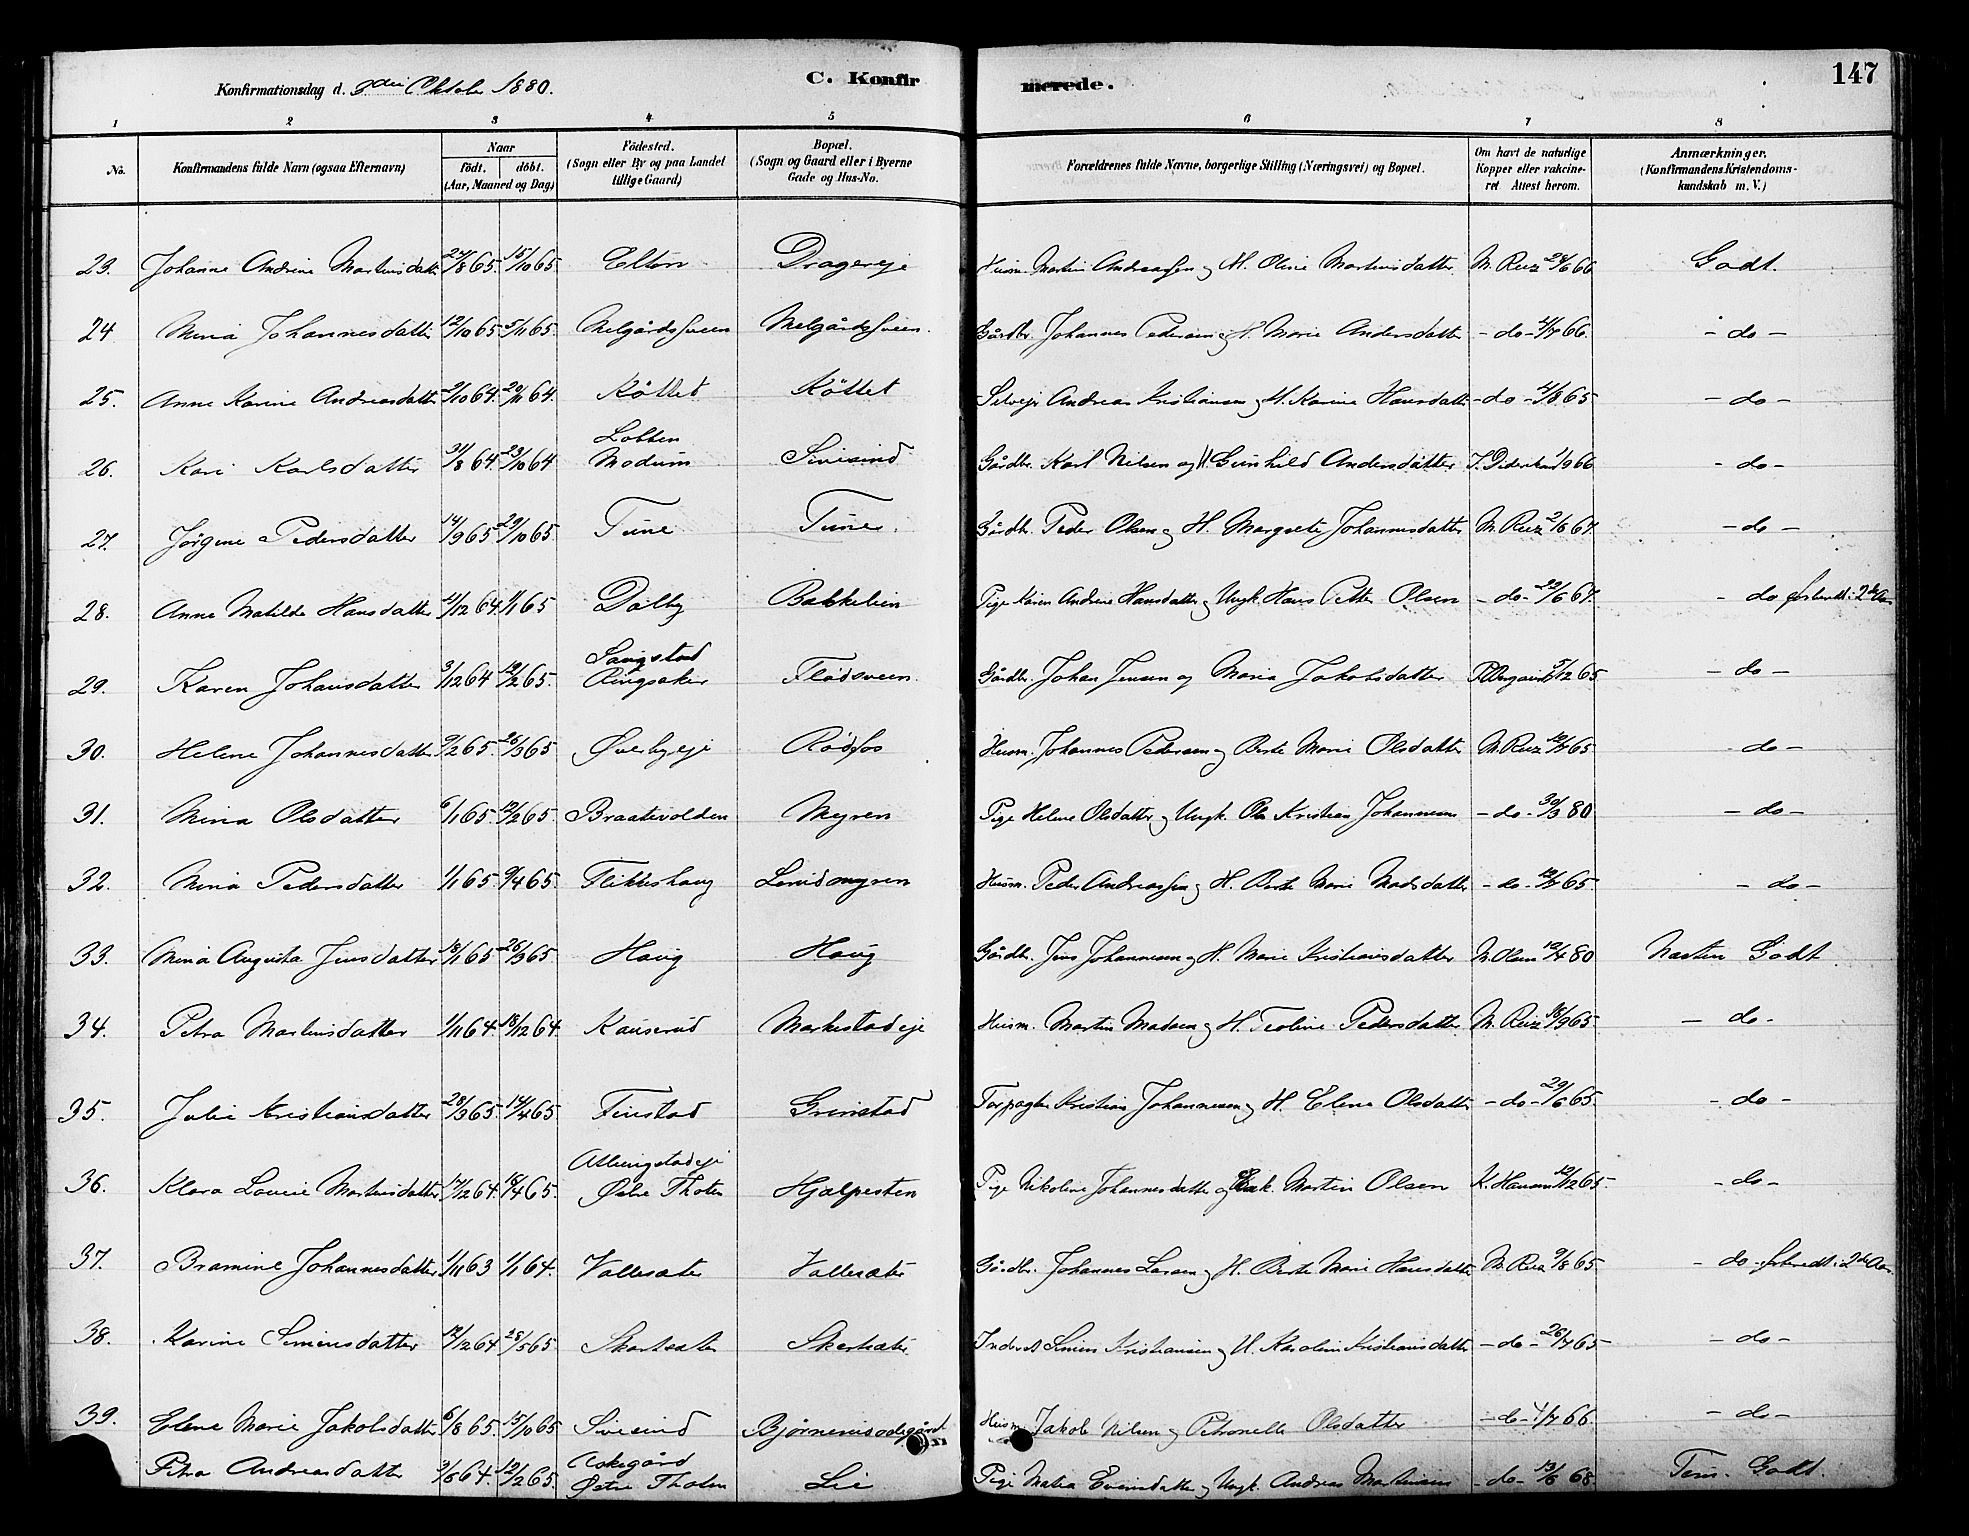 Konfirmationsdag d. 3die Oktober 1880.
C. Konfirmerede.
147
1 2 3 4 5 6 7 8
No.
Konfirmandens fulde Navn (ogsaa Efternavn)
Naar
født. døbt.
(Aar, Maaned og Dag)
Fødested.
(Sogn eller By og paa Landet
tillige Gaard)
Bopæl.
(Sogn og Gaard eller i Byerne
Gade og Hus-No.
Forældrenes fulde Navne, borgerlige Stilling (Næringsvei) og Bopæl.
Om havt de naturlige
Kopper eller vakcine-
ret Attest herom.
Anmærkninger.
(Konfirmandens Kristendoms-
kundskab m. V.)
23. Johanne Andrine Martinsdatter 24/8 65. 15/10 65. Elton Dragereje Husm. Martin Andreassen og H. Oline Martinsdatter. M. Reiz 24/6 66 Godt.
24 Mina Johannesdatter 12/10 65 5/11 65. Melgårdssveen Melgårdssveen. Gårdbr. Johannes Pedersen og H. Marie Andersdatter - do - 4/7 66. - do -
25. Anne Karine Andreasdatter 2/10 64. 20/11 64. Köttet Köttet Selvejr Andreas Kristiansen og H. Karine Hansdatter - do - 4/8 65 - do -
26. Kari Karlsdatter 31/8 64. 23/10 64 Lobben Modum Sivesind Gårdbr. Karl Nilsen og H. Gunhild Andersdatter 1/9 66 - do -
27. Jørgine Pedersdatter 14/9 65 29/10 65. Tune Tune. Gårdbr. Peder Olsen og H. Margrete Johannesdatter M. Reiz 2/6 67. - do -
28. Anne Matilde Hansdatter 4/12 64. 1/1 65 Dalby Bakkelien Pige Karen Andrine Hansdatter og Ungk. Hans Petter Olsen - do - 22/6 67. - do forberedt i 2det Aar
29. Karen Johansdatter 3/12 64 19/2 65. Saugstad Ringsaker Flådsveen. Gårdbr. Johan Jensen og Maria Jakobsdatter 7/12 65 - do -
30. Helene Johannesdatter 9/2 65. 26/3 65 Øverbyeje Rødfos Husm. Johannes Pedersen og Berte Marie Olsdatter M. Reiz 12/7 65 - do -
31. Mina Olsdatter 6/1 65. 12/2 65. Braatevolden Myren Pige Helene Olsdatter og Ungk. Ole Kristian Johannesen - do - 30/3 80 - do -
32. Mina Pedersdatter 1/1 65 9/4 65. Flikkeshaug Lundmyren Husm. Peder Andreassen og H. Berte Marie Madsdatter - do - 12/7 65 - do -
33. Mina Augusta Jensdatter 18/1 65 26/3 65. Haug Haug Gårdbr. Jens Johannesen og H. Marie Kristiansdatter M. Olsen 12/4 80 Næsten Godt
34. Petra Martinsdatter 1/11 64. 18/12 64. Kauserud Markestadeje Husm. Martin Madsen og H. Teoline Pedersdatter M. Reiz 16/9 65 - do -
35. Julie Kristiansdatter 28/3 65. 14/4 65 Finstad Grimstad Forpagter Kristian Johannesen og H. Elene Olsdatter - do - 29/6 65. - do -
36. Klara Lovise Martinsdatter 17/12 64. 18/4 65. Albingstadeje Østre Thoten Hjælpesten Pige Nikoline Johannesdatter og Enk. Martin Olsen K. Hansen 12/12 65. - do -
37. Bramine Johannesdatter 1/11 63 1/1 64. Vallesæter Vallesæter Gårdbr. Johannes Larsen og H. Berte Marie Hansdatter M. Reiz 9/8 65 - do - forberedt i 2det Aar
38. Karine Simensdatter 12/12 64 28/5 65. Skartsæter Skartsæter. Inderst Simen Kristiansen og H. Karoline Kristiansdatter - do - 26/7 65 - do -
39. Elene Marie Jakobsdatter 6/8 65. 15/10 65 Sivesind Bjørnerudødegård Husm. Jakob Nilsen og Petronelle Olsdatter - do - 4/7 66 - do -
Petra Andreasdatter 9/6 64. 12/2 65. Askegård Østre Thoten Lie Pige Matea Evensdatter og Ungk. Andreas Martinsen - do - 13/6 68. Tem. Godt.